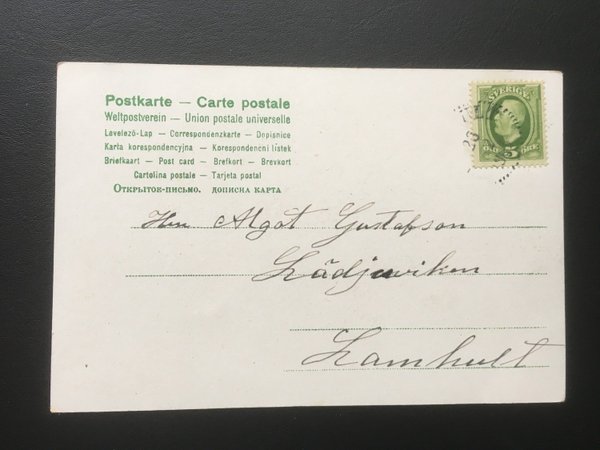 Postkarte — Carte postale
Weltpostverein — Union postale universelle
Levelező-Lap — Correspondenzkarte — Dopisnice
Karta korespondencyjna — Korespondenční lístek
Briefkaart — Post card — Brefkort — Brevkort
Cartolina postale — Tarjeta postal
Открытое-письмо. дописна карта
SVERIGE
ÖRE 5 ÖRE
23
Herr Algot Gustafson
Lädjeviken
Lamhult